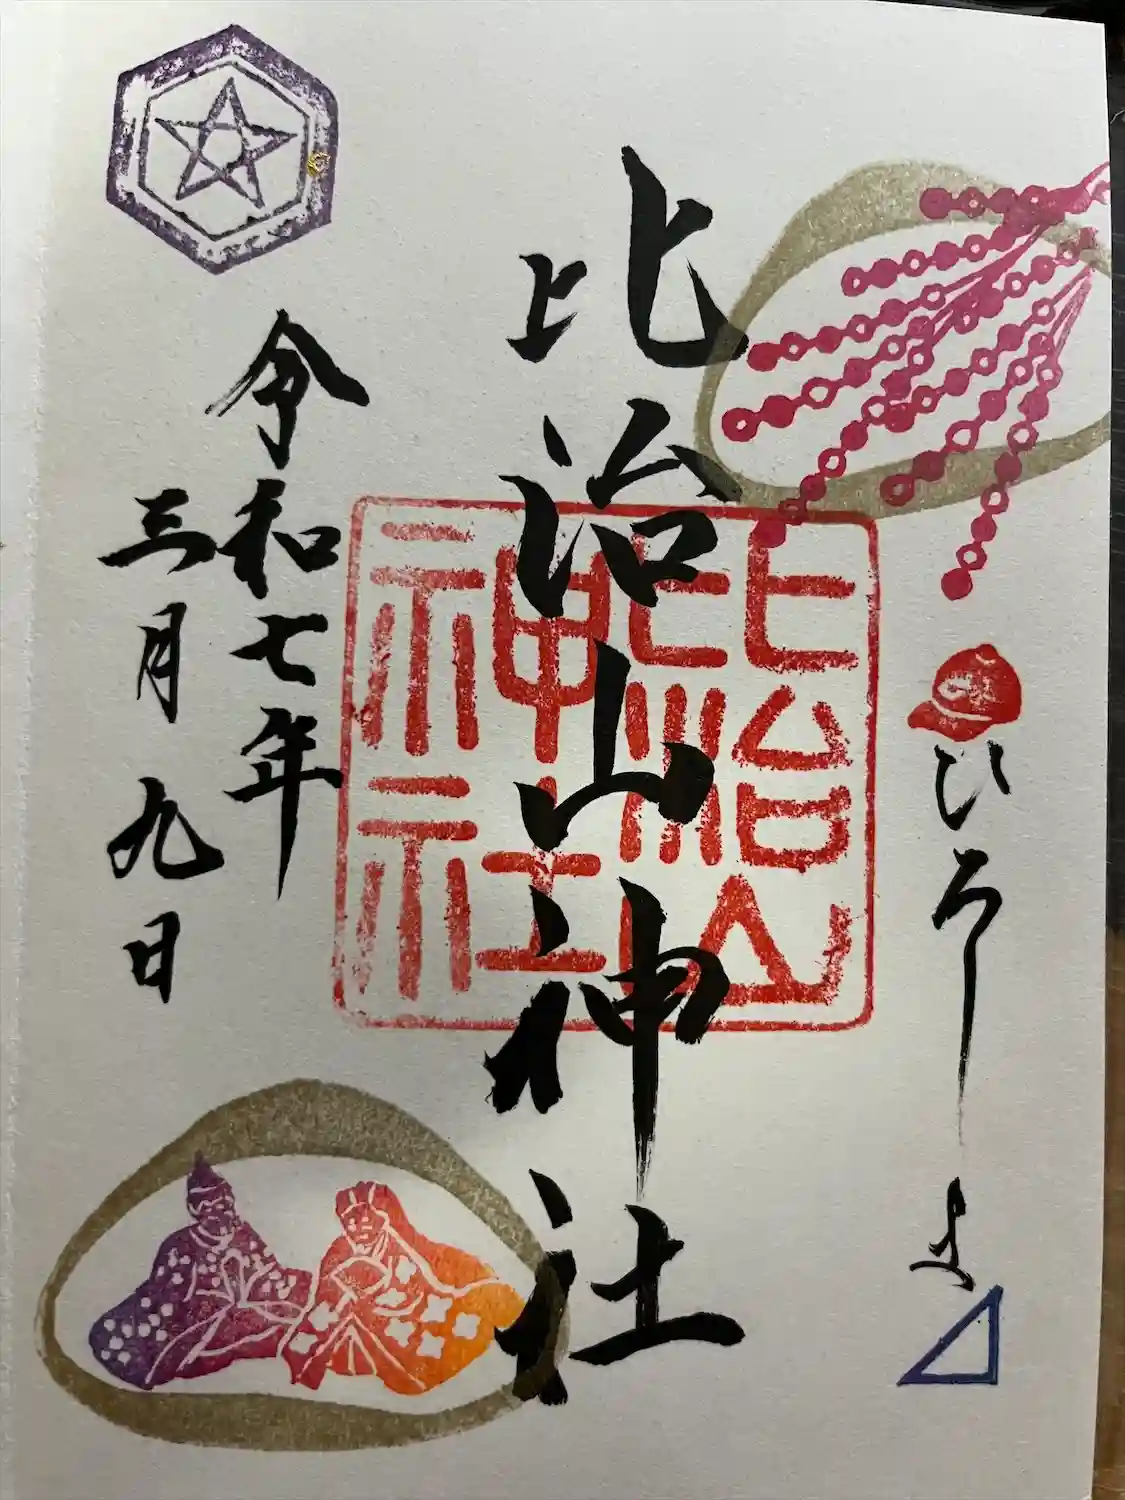 ひろしま
比治山神社
比治山神社
令和七年
三月九日